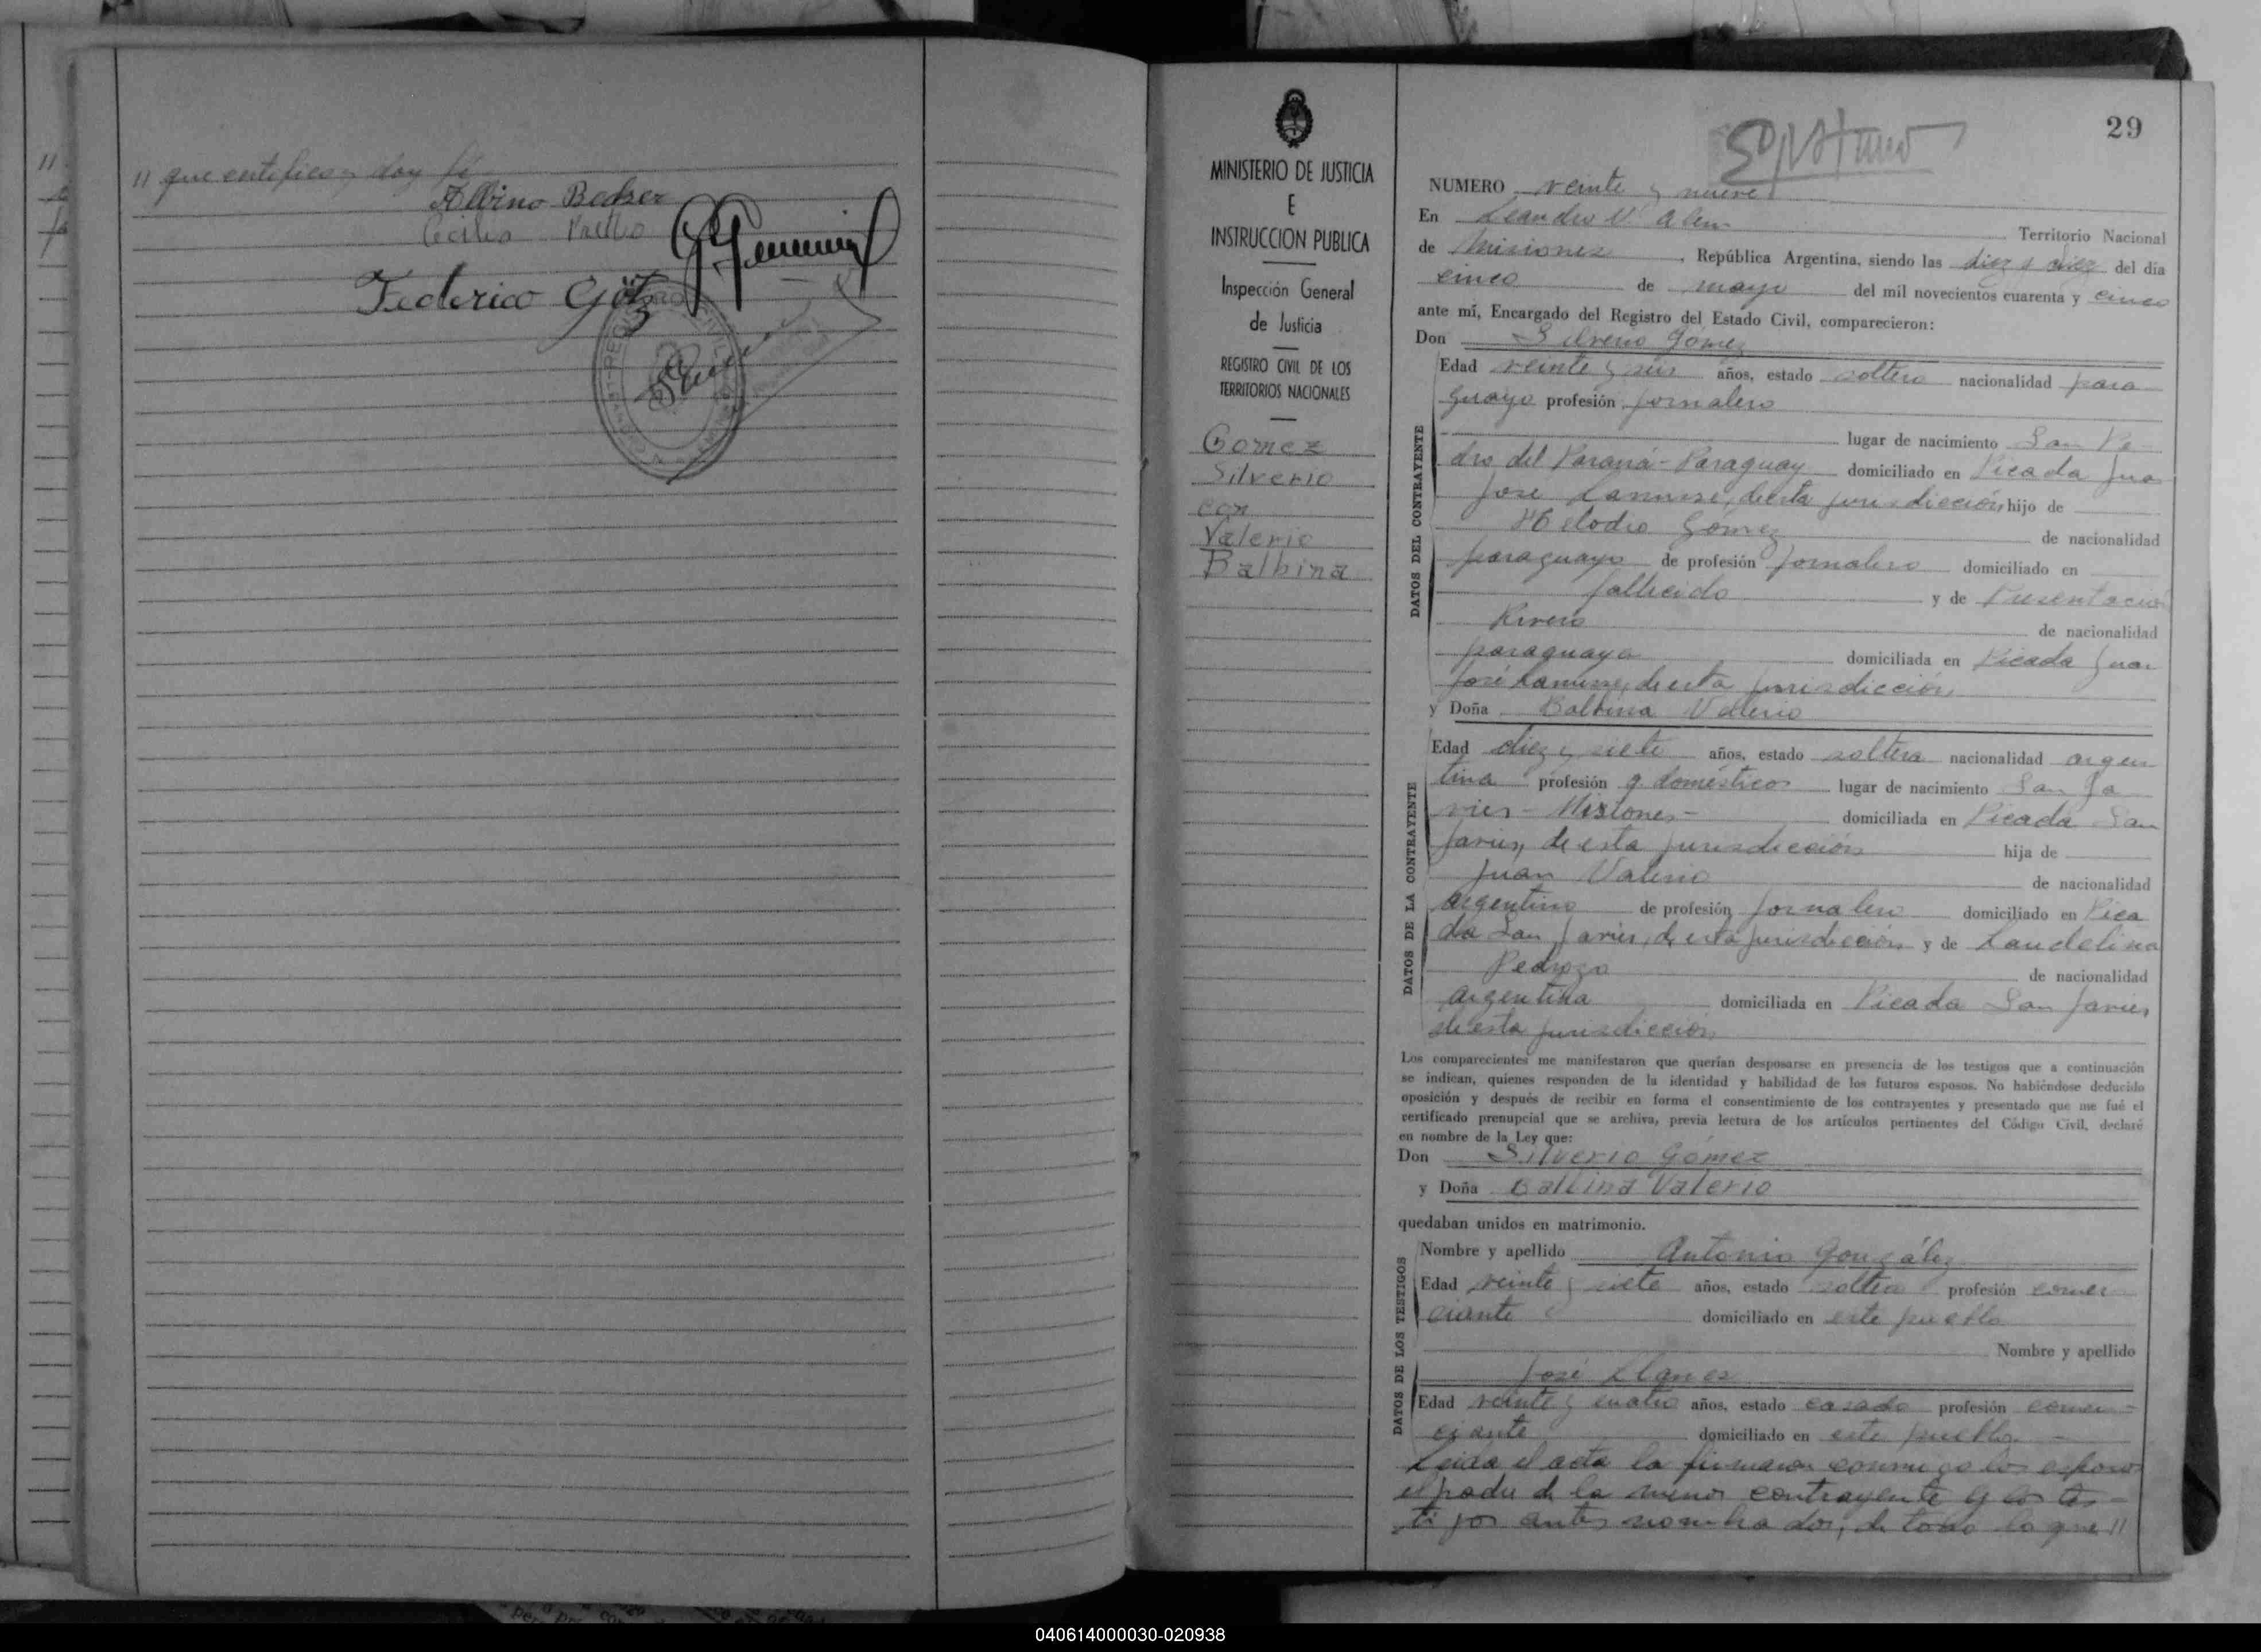 // que certifico y doy fé
Albino Becker
Cecilia
Federico Götz
29
MINISTERIO DE JUSTICIA
E
INSTRUCCION PUBLICA
Inspección General
de Justicia
REGISTRO CIVIL DE LOS
TERRITORIOS NACIONALES
Gomez
Silverio
con
Valerio
Balbina
NUMERO veinte y nueve
En Leandro N Alem Territorio Nacional
de Misiones, República Argentina, siendo las diez y diez del día
cinco de mayo del mil novecientos cuarenta y cinco
ante mí, Encargado del Registro del Estado Civil, comparecieron:
Don Silverio Gómez
DATOS DEL CONTRAYENTE
Edad veinte y seis años, estado soltero nacionalidad para
guayo profesión jornalero
lugar de nacimiento San Pe
dro del Paraná - Paraguay domiciliado en Picada Juan
José Lanusse, de esta jurisdicción, hijo de
Gómez de nacionalidad
paraguayo de profesión jornalero domiciliado en
fallecido y de Presentación
Rivero de nacionalidad
paraguaya domiciliada en Picada Juan
José Lanusse, de esta jurisdicción
y Doña Balbina Valerio
DATOS DE LA CONTRAYENTE
Edad diez y siete años, estado soltera nacionalidad argen
tina profesión q. domésticos lugar de nacimiento San Ja
vier - Misiones - domiciliada en Picada San
Javier, de esta jurisdicción hija de
Juan Valerio de nacionalidad
argentino de profesión jornalero domiciliado en Pica
da San Javier, de esta jurisdicción y de Laudelina
Pedrozo de nacionalidad
argentina domiciliada en Picada San Javier,
de esta jurisdicción
Los comparecientes me manifestaron que querían desposarse en presencia de los testigos que a continuación
se indican, quienes responden de la identidad y habilidad de los futuros esposos. No habiéndose deducido
oposición y después de recibir en forma el consentimiento de los contrayentes y presentado que me fué el
certificado prenupcial que se archiva, previa lectura de los artículos pertinentes del Código Civil, declaré
en nombre de la Ley que:
Don Silverio Gómez
y Doña Balbina Valerio
quedaban unidos en matrimonio.
DATOS DE LOS TESTIGOS
Nombre y apellido Antonio González
Edad veinte y siete años, estado soltero profesión comer
ciante domiciliado en este pueblo
Nombre y apellido
José Llanes
Edad veinte y cuatro años, estado casado profesión comer-
ciante domiciliado en este pueblo. -
Leida el acta la firmaron conmigo los esposos
el padre de la menor contrayente y los tes-
tigos antes nombrados, de todo lo que //
040614000030-020938